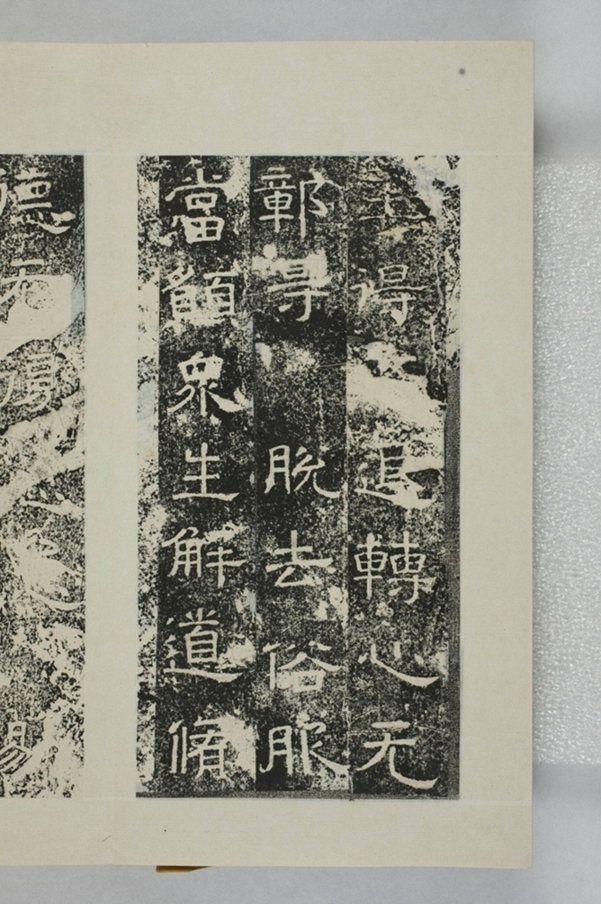 生得退轉心无
鄣得脫去俗服
當願眾生解道脩
德
易